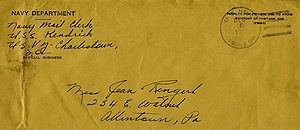 NAVY DEPARTMENT
Navy Mail Clerk
U.S.S. Kendrick
U.S. Ny. Charleston,
S.C.
OFFICIAL BUSINESS
PENALTY FOR PRIVATE USE TO AVOID
PAYMENT OF POSTAGE, $300
Miss Jean Rengert
234 E. Walnut
Allentown, Pa